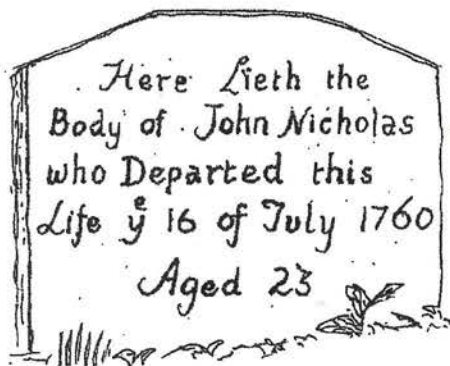 Here Lieth the
Body of John Nicholas
who Departed this
Life yͤ 16 of July 1760
Aged 23